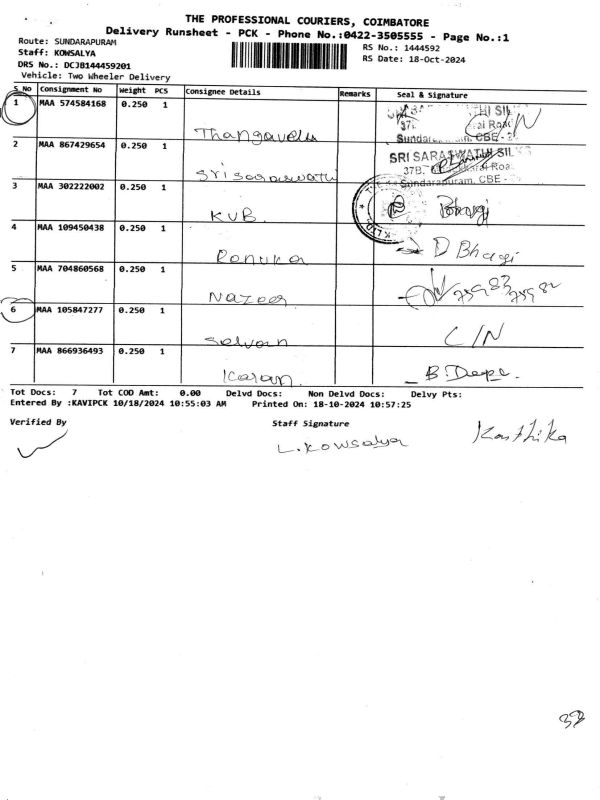 THE PROFESSIONAL COURIERS, COIMBATORE
Delivery Runsheet - PCK - Phone No.:0422-3505555 - Page No.:1
Route: SUNDARAPURAM
RS No.: 1444592
Staff: KOWSALYA
RS Date: 18-Oct-2024
DRS No.: DCJB144459201
Vehicle: Two Wheeler Delivery
S No Consignment No Weight PCS Consignee Details Remarks Seal & Signature
1 MAA 574584168 0.250 1 Thangavelu C/N
Sundarapuram, CBE -
2 MAA 867429654 0.250 1 Srisaraswathi
SRI SARASWATHI SILKS
37B,
Sundarapuram, CBE -
3 MAA 302222002 0.250 1 KVB
4 MAA 109450438 0.250 1 Renuka D Bhagi
5 MAA 704860568 0.250 1 Nazeer
6 MAA 105847277 0.250 1 Selvan C/N
7 MAA 866936493 0.250 1 Karan B. Deepa.
Tot Docs: 7 Tot COD Amt: 0.00 Delvd Docs: Non Delvd Docs: Delvy Pts:
Entered By :KAVIPCK 10/18/2024 10:55:03 AM Printed On: 18-10-2024 10:57:25
Verified By Staff Signature
L. Kowsalya Karthika